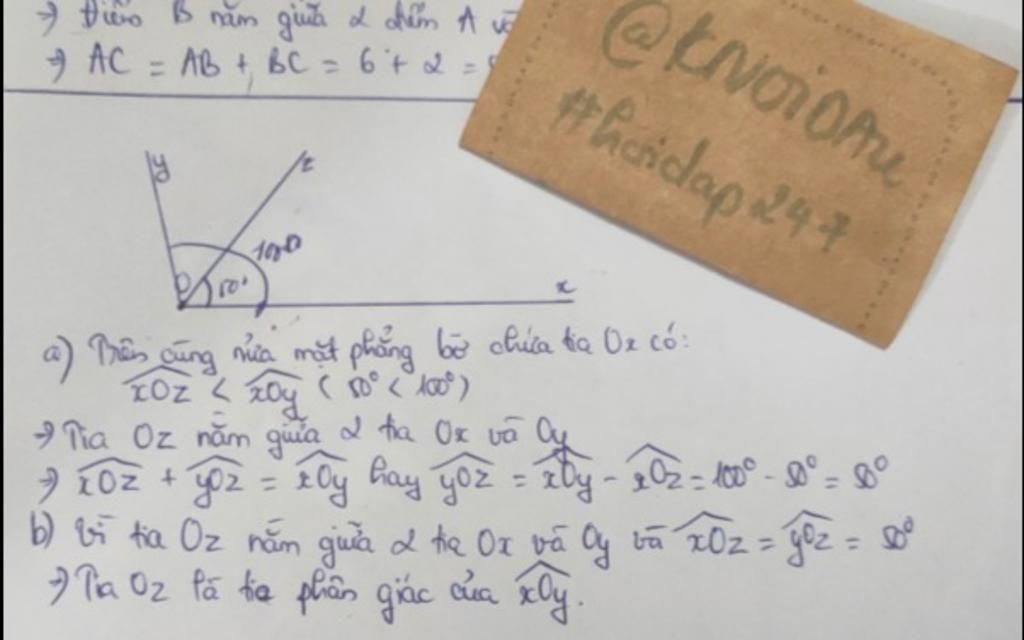 → Điểm B nằm giữa 2 điểm A và
→ AC = AB + BC = 6 + 2 =
@KNOiDAu
#hoidap247
y
z
100°
O
50°
x
a) Trên cùng nửa mặt phẳng bờ chứa tia Ox có:
xOz < xOy (50° < 100°)
→ Tia Oz nằm giữa 2 tia Ox và Oy
→ xOz + yOz = xOy hay yOz = xOy - xOz = 100° - 50° = 50°
b) Vì tia Oz nằm giữa 2 tia Ox và Oy và xOz = yOz = 50°
→ Tia Oz là tia phân giác của xOy.